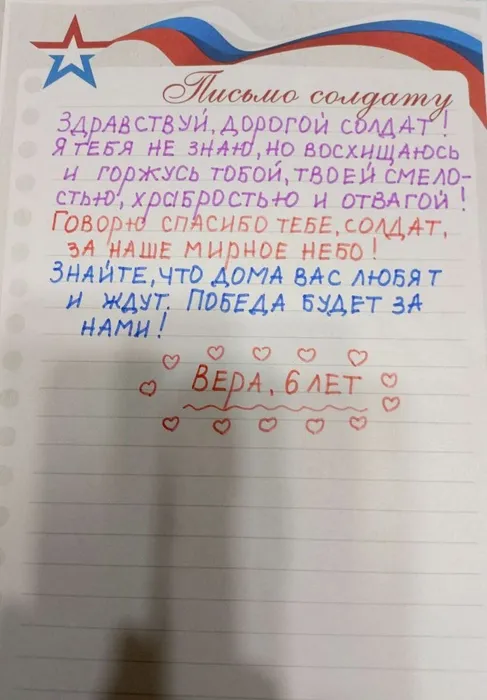 Письмо солдату
ЗДРАВСТВУЙ, ДОРОГОЙ СОЛДАТ!
Я ТЕБЯ НЕ ЗНАЮ, НО ВОСХИЩАЮСЬ
И ГОРЖУСЬ ТОБОЙ, ТВОЕЙ СМЕЛО-
СТЬЮ, ХРАБРОСТЬЮ И ОТВАГОЙ!
ГОВОРЮ СПАСИБО ТЕБЕ, СОЛДАТ,
ЗА НАШЕ МИРНОЕ НЕБО!
ЗНАЙТЕ, ЧТО ДОМА ВАС ЛЮБЯТ
И ЖДУТ. ПОБЕДА БУДЕТ ЗА
НАМИ!
ВЕРА, 6 ЛЕТ